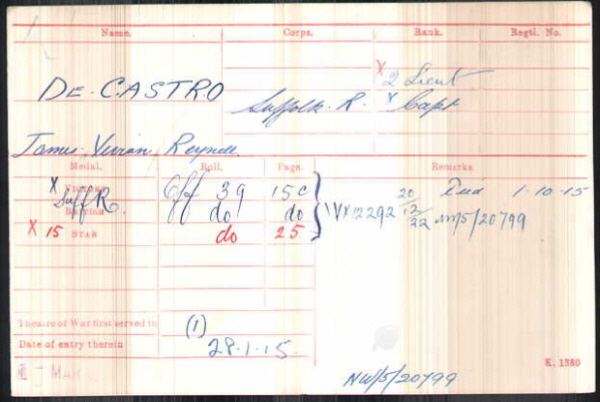 Name. Corps. Rank. Regtl. No.
DE-CASTRO Suffolk. R. X 2 Lieut
X Capt
James Vivian Reynell
Medal. Roll. Page. Remarks
X VICTORY Off 39 15C Died 1-10-15
Suff R. BRITISH do do IVX12292 20/12/22 NW/5/20799
X 15 STAR do 25
Theatre of War first served in (1)
Date of entry therein 28.1.15.
K. 1380
NW/5/20799